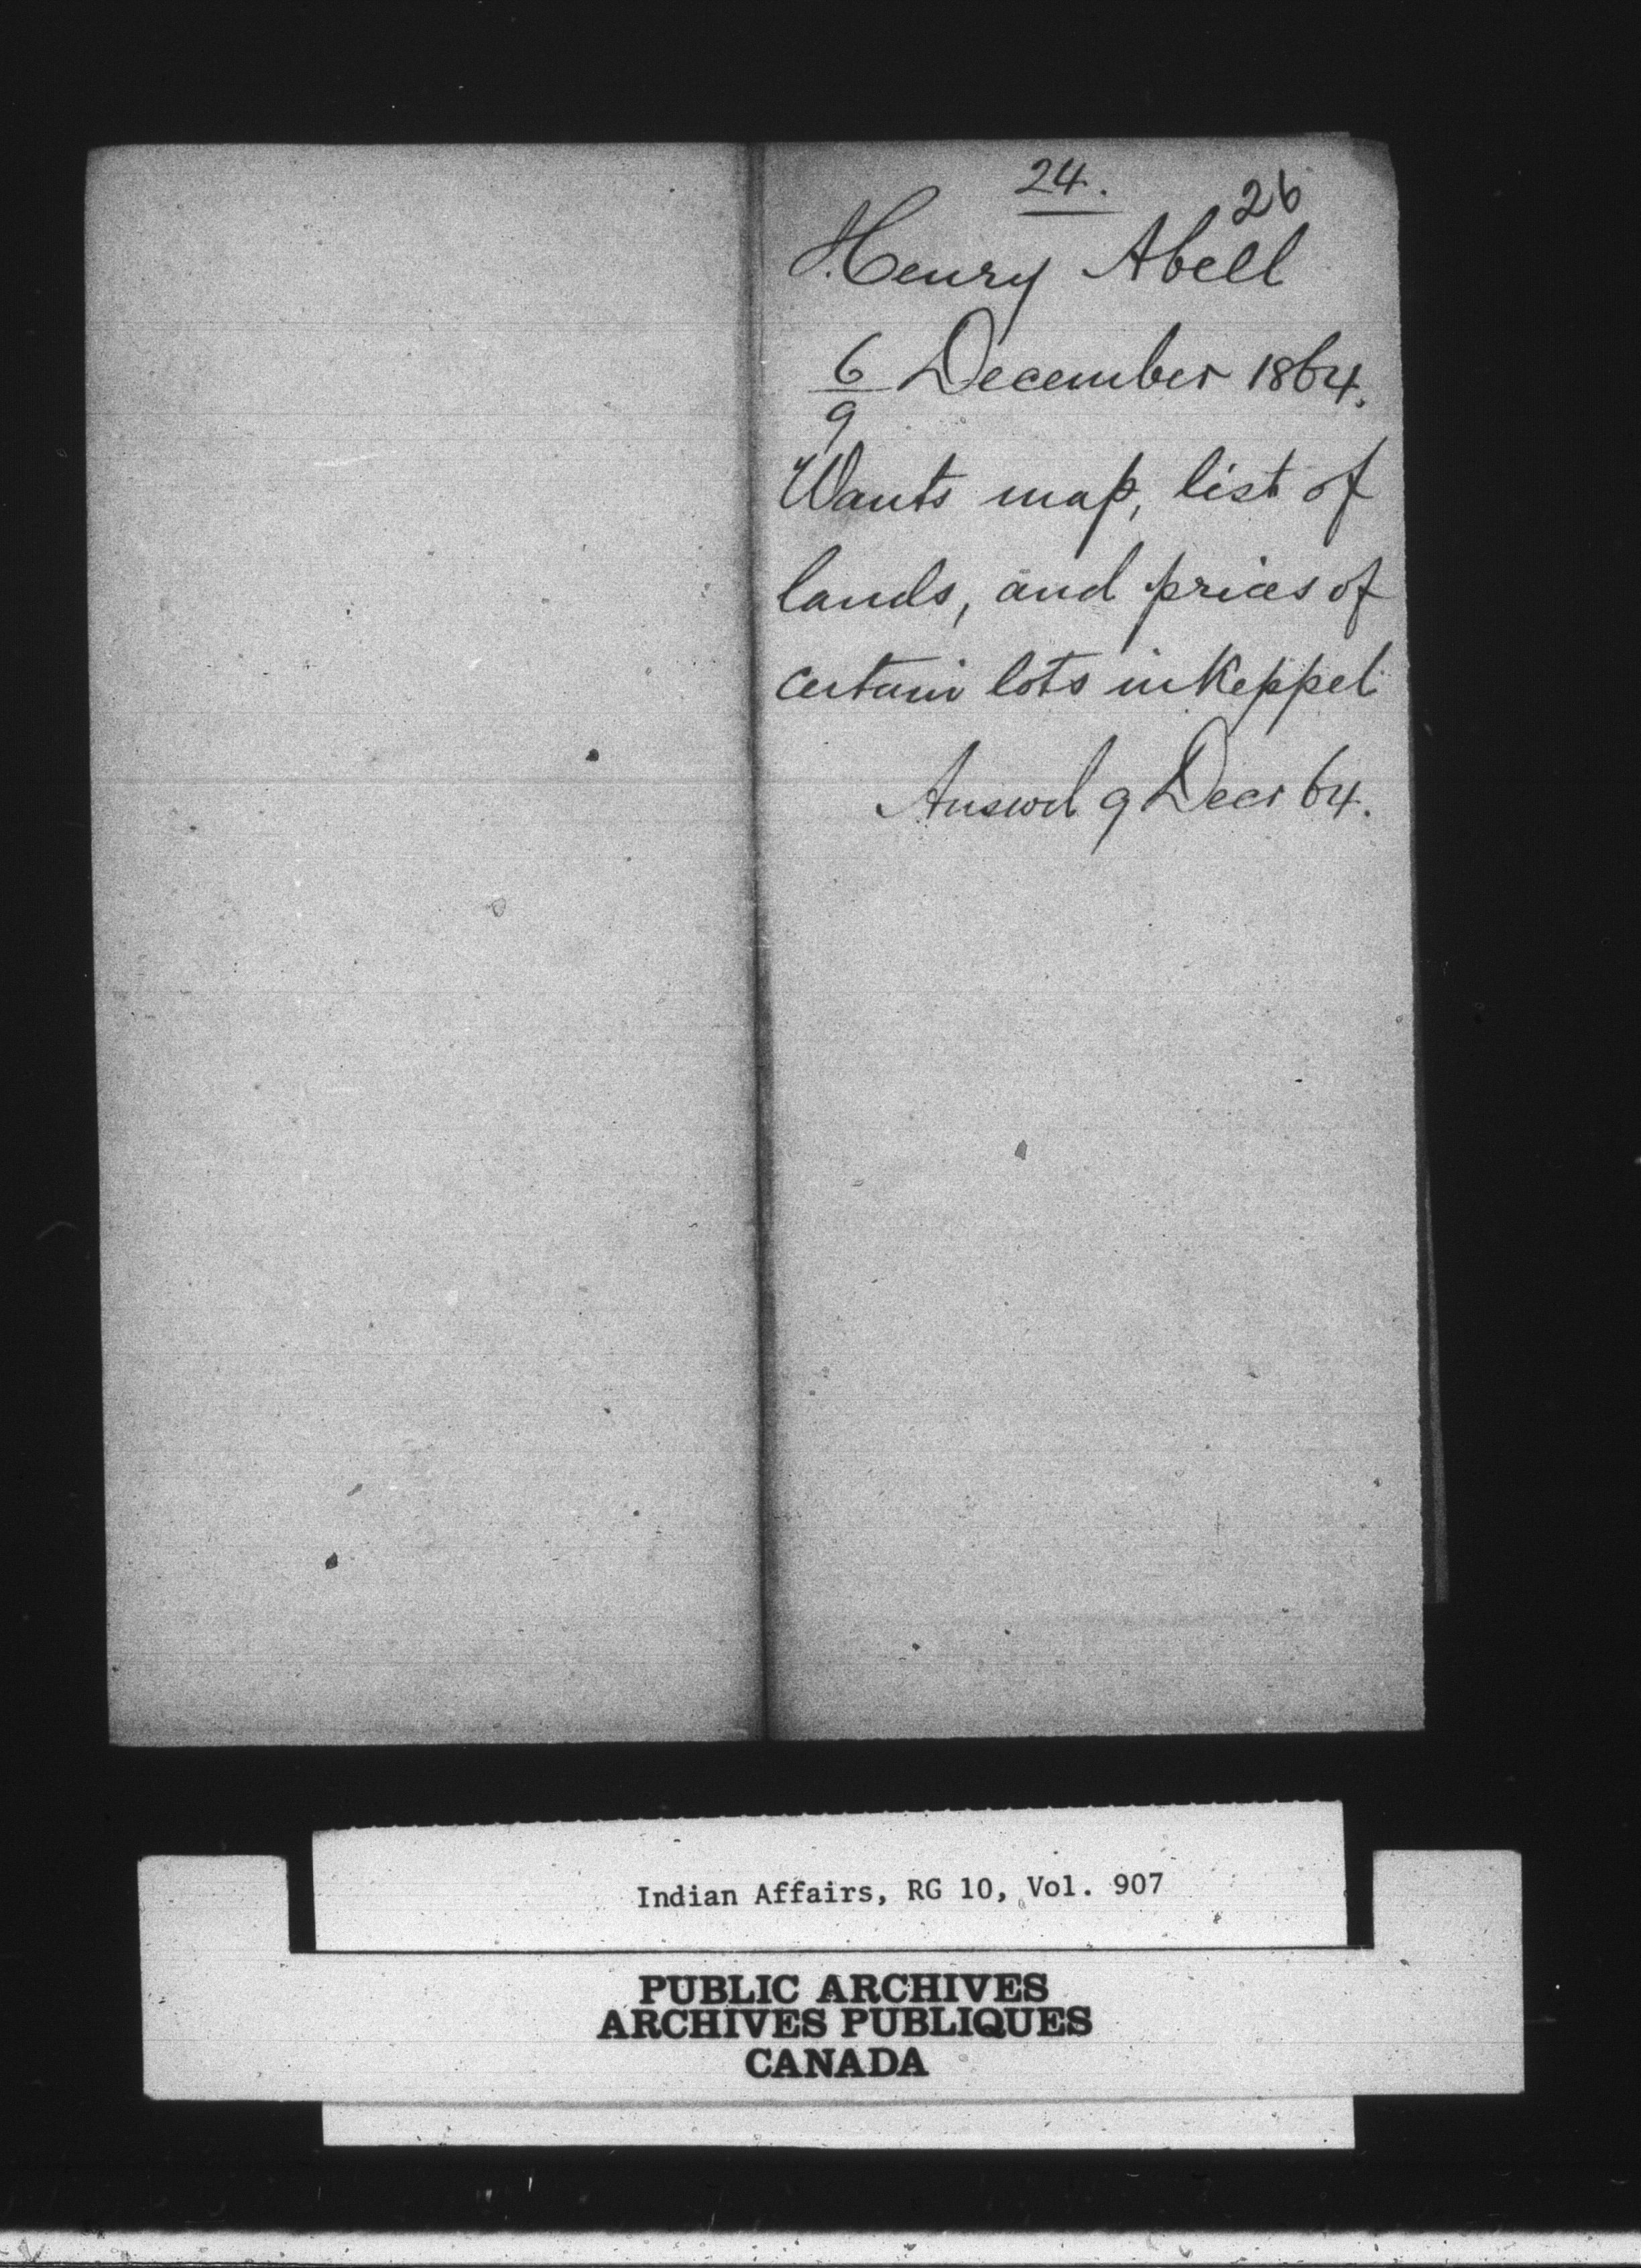 24.
26
Henry Abell
6/9 December 1864.
Wants map, list of
lands, and prices of
certain lots in Keppel
Answd 9 Decr 64.
Indian Affairs, RG 10, Vol. 907
PUBLIC ARCHIVES
ARCHIVES PUBLIQUES
CANADA